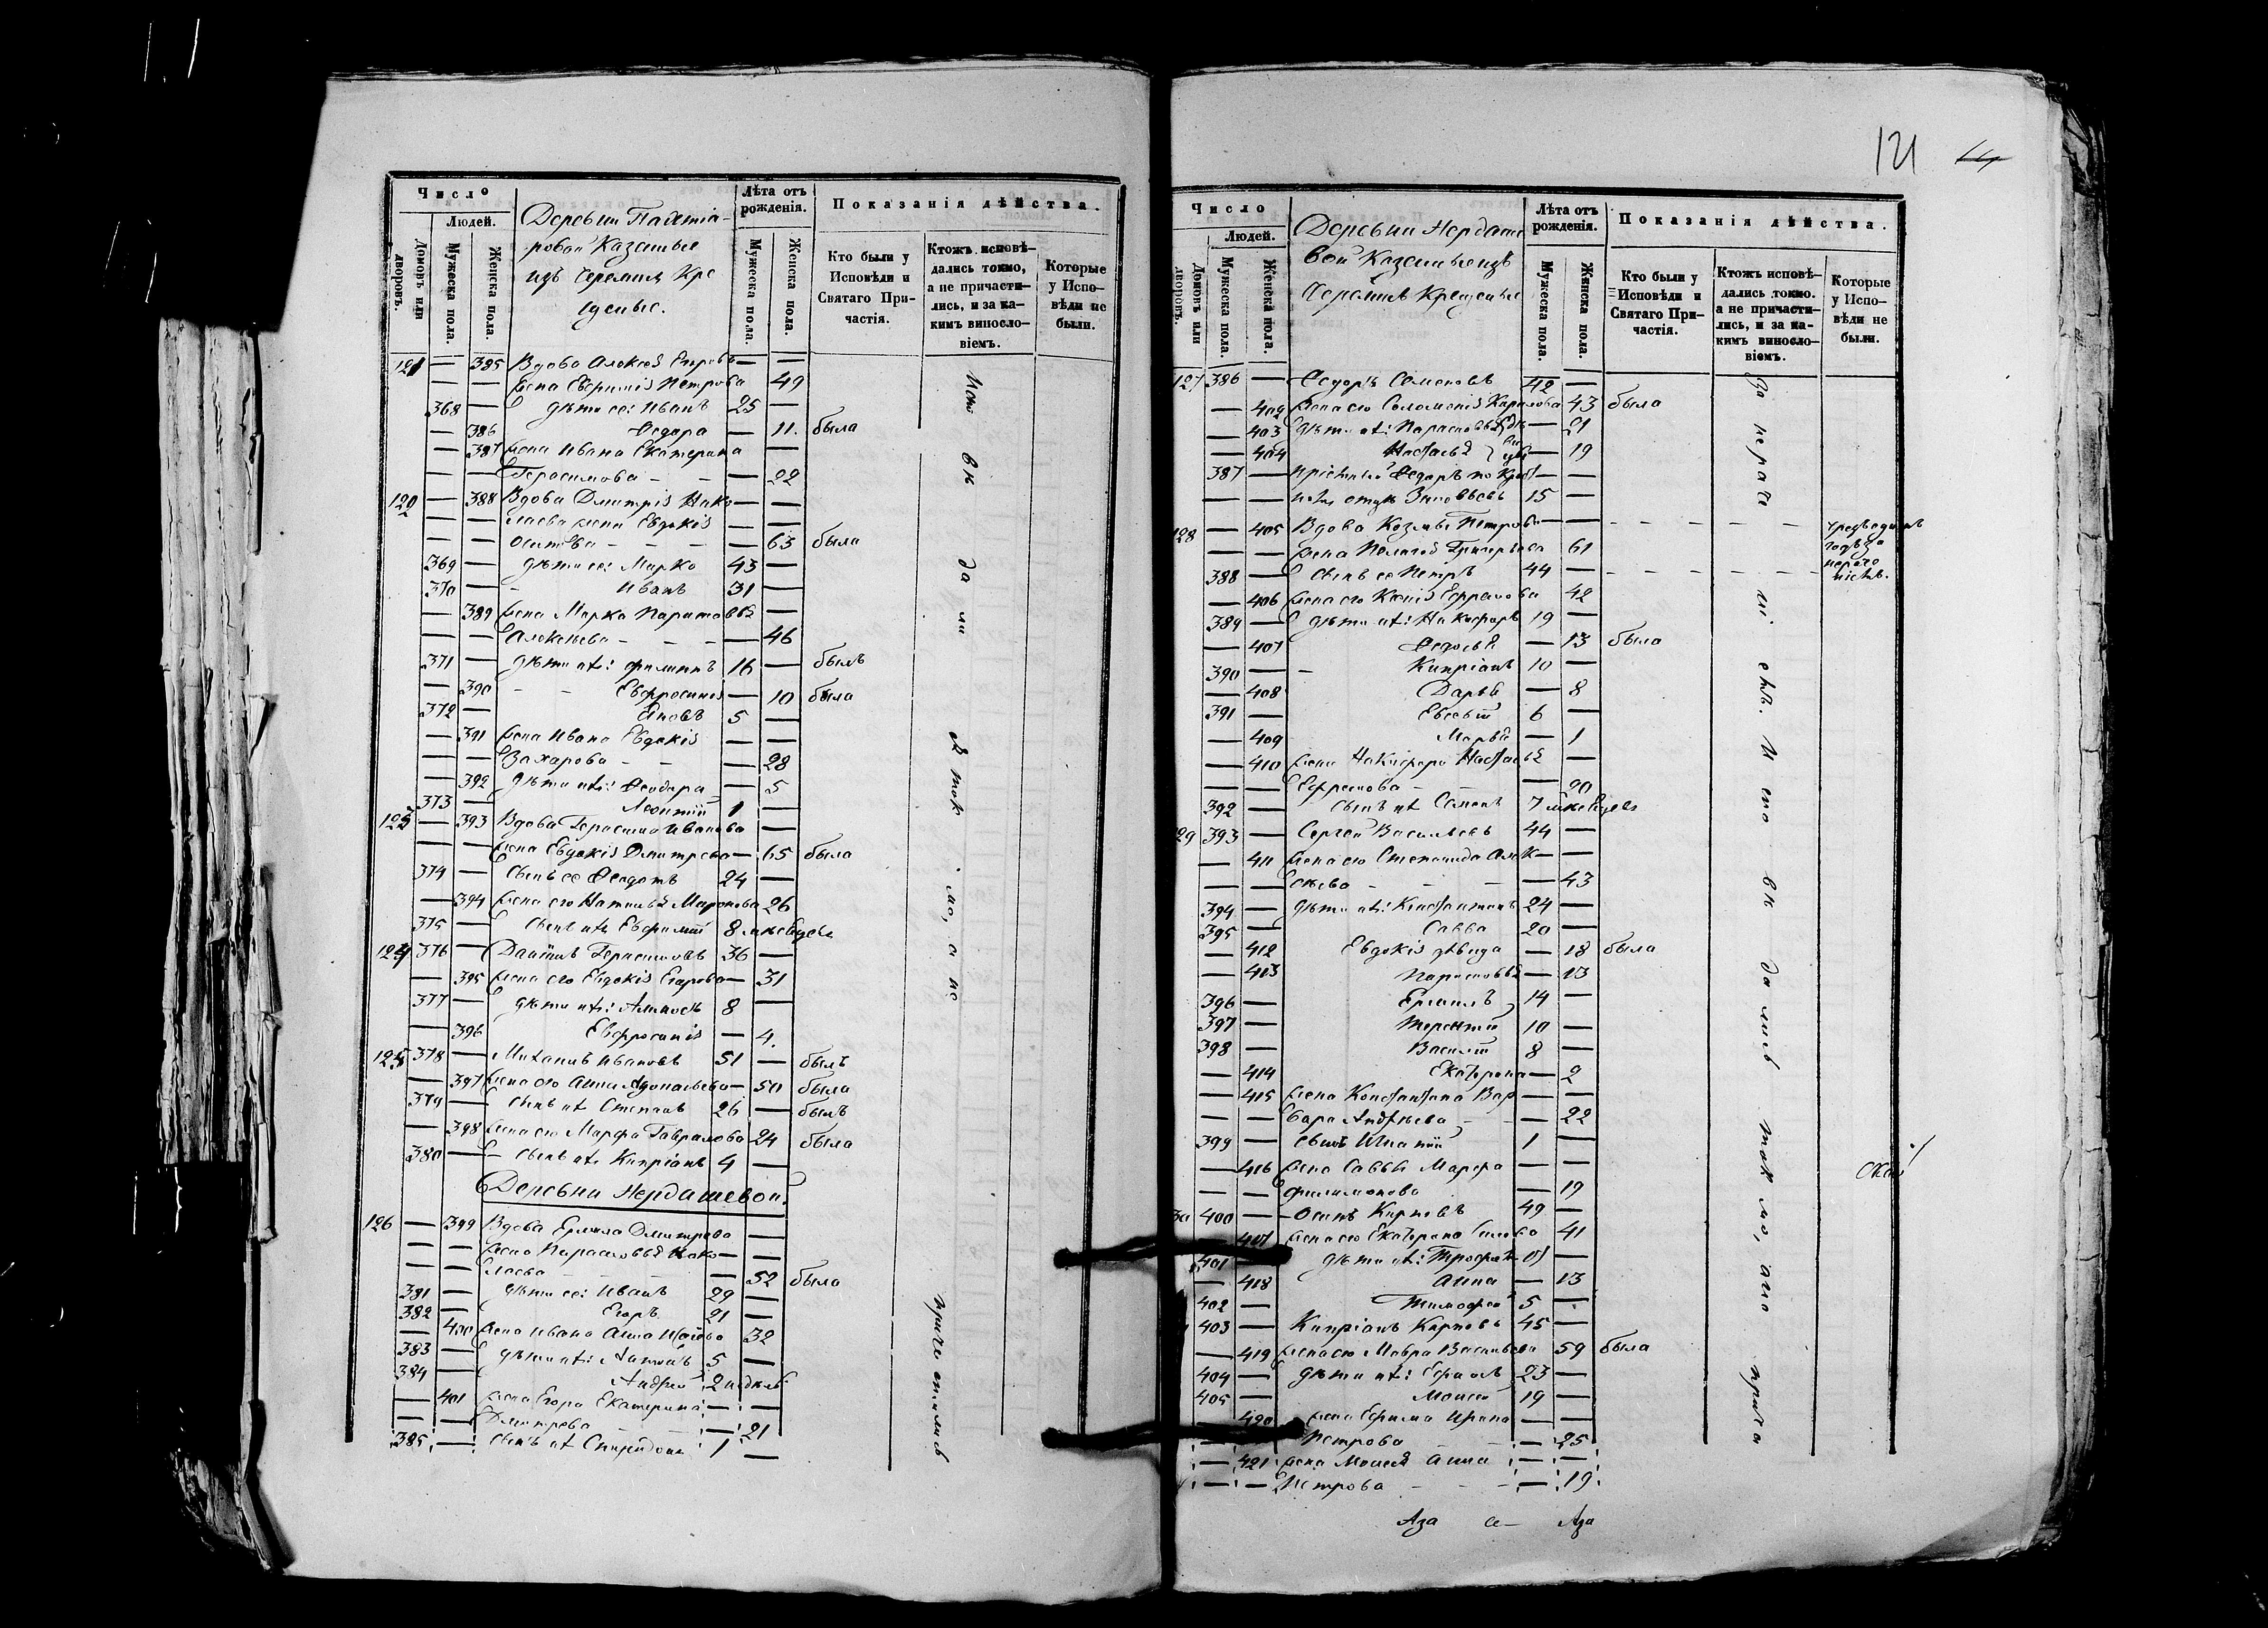 Число
Людей.
Домовъ или дворовъ.
Мужеска пола.
Женска пола.
Деревни
ровой Казенные
изъ Черемисъ Кре
щеные.
Лѣта отъ рожденія.
Мужеска пола.
Женска пола.
Показанія дѣйства.
Кто были у Исповѣди и Святаго Причастія.
Ктожъ исповѣдались токмо, а не причастились, и за какимъ винословіемъ.
Которые у Исповѣди не были.
121 — 385 Вдова Алексея Егорова — —
— — жена Евфимія Петрова 49
368 — дѣти ее: Иванъ 25 —
— 386 Федора — 11. была
— 387 жена Ивана Екатерина —
— — Герасимова - - — 22
122 — 388 Вдова Дмитрія Нико — —
— — лаева жена Евдокія — —
— — Осипова - - - — 63 была
369 — дѣти ее: Марко 43 —
370 — - Иванъ 31 —
— 389 жена Марка Парасковья —
— — Алексѣева - - - — 46
371 — дѣти ихъ: Филиппъ 16 — былъ
— 390 - - Евфросинія — 10 была
372 — Яковъ 5 —
— 391 жена Ивана Евдокія — —
— — Захарова - - — 28
— 392 дѣти ихъ: Феодора — 5
373 — Леонтій 1 —
123 — 393 Вдова Герасима Иванова —
— — жена Евдокія Дмитрева — 65 была
374 — сынъ ее Федотъ 24 —
— 394 жена его Наталья Миронова 26
375 — сынъ ихъ Евфимій 8 мѣсяцевъ
124 376 — Даніилъ Герасимовъ 36 —
— 395 жена его Евдокія Егорова — 31
377 — дѣти ихъ: 8 —
— 396 Евфросинія — 4.
125 378 — Михаилъ Ивановъ 51 — былъ
— 397 жена его Анна — 50 была
379 — сынъ ихъ Степанъ 26 — былъ
— 398 жена его Марфа Гаврилова 24 была
380 — сынъ ихъ Кипріанъ 4 —
Деревни Мердашевой.
126 — 399 Вдова Ермила Дмитрева —
— — жена Парасковья Нико — —
— — лаева — 52 была
381 — дѣти ее: Иванъ 29 —
382 — Егоръ 21 —
— 400 жена Ивана Анна 32
383 — дѣти ихъ: 5 —
384 — Андрей 2 недѣль
— 401 жена Егора Екатерина — —
— — Дмитрева — 21
385 — сынъ ихъ Спиридонъ 1 —
Испо вѣ да ли сь ток мо, а не причастились
121
Число
Людей.
Домовъ или дворовъ.
Мужеска пола.
Женска пола.
Деревни Мердаше
вой Казенные изъ
Черемисъ Крещеные
Лѣта отъ рожденія.
Мужеска пола.
Женска пола.
Показанія дѣйства.
Кто были у Исповѣди и Святаго Причастія.
Ктожъ исповѣдались токмо. а не причастились, и за какимъ винословіемъ.
Которые у Исповѣди не были.
127 386 — Федоръ Семеновъ 42 —
— 402 жена его Соломонія Карпова 43 была
— 403 дѣти ихъ: Парасковья — 21
— 404 Настасья — 19
387 — Федоръ по Крест —
— — Зиновьевъ 15 —
128 — 405 Вдова Козмы Петрова — — - - - - -
— — жена Пелагея Григорьева 61
388 — сынъ ее Петръ 44 — - - - - - -
— 406 жена его Ксенія Ефремова 42
389 — дѣти ихъ: Никифоръ 19 —
— 407 Федосья — 13 была
390 — - Кипріанъ 10 —
— 408 Дарья — 8
391 — Евсевій 6 —
— 409 Марья — 1
— 410 жена Никифора Настасья —
— — Ефремова - — 20
392 — сынъ ихъ Семенъ 7 мѣсяцевъ
129 393 — Сергей Васильевъ 44 —
— 411 жена его Степанида Алек — —
— — сѣева - - — 43
394 — дѣти ихъ: Константинъ 24 —
395 — Савва 20 —
— 412 Евдокія дѣвица — 18 была
— 413 Парасковья — 13
396 — Ермилъ 14 —
397 — Терентій 10 —
398 — Василій 8 —
— 414 Екатерина — 2
— 415 жена Константина Вар — —
— — вара Андрѣева - - — 22
399 — сынъ 1 —
— 416 жена Саввы Марфа — —
— — Филимонова — 19
130 400 — Осипъ Карповъ 49 —
417 жена его Екатерина 41
401 — дѣти ихъ: Трофимъ —
— 418 Анна — 13
402 — Тимофей 5 —
403 — Кипріанъ Карповъ 45 —
— 419 жена его Мавра Васильева 59 была
404 — дѣти ихъ: Ефимъ 23 —
405 — Моисей 19 —
420 жена Ефима Ирина — —
— Петрова — 25
— 421 жена Моисея Анна — —
— — Петрова - - - — 19